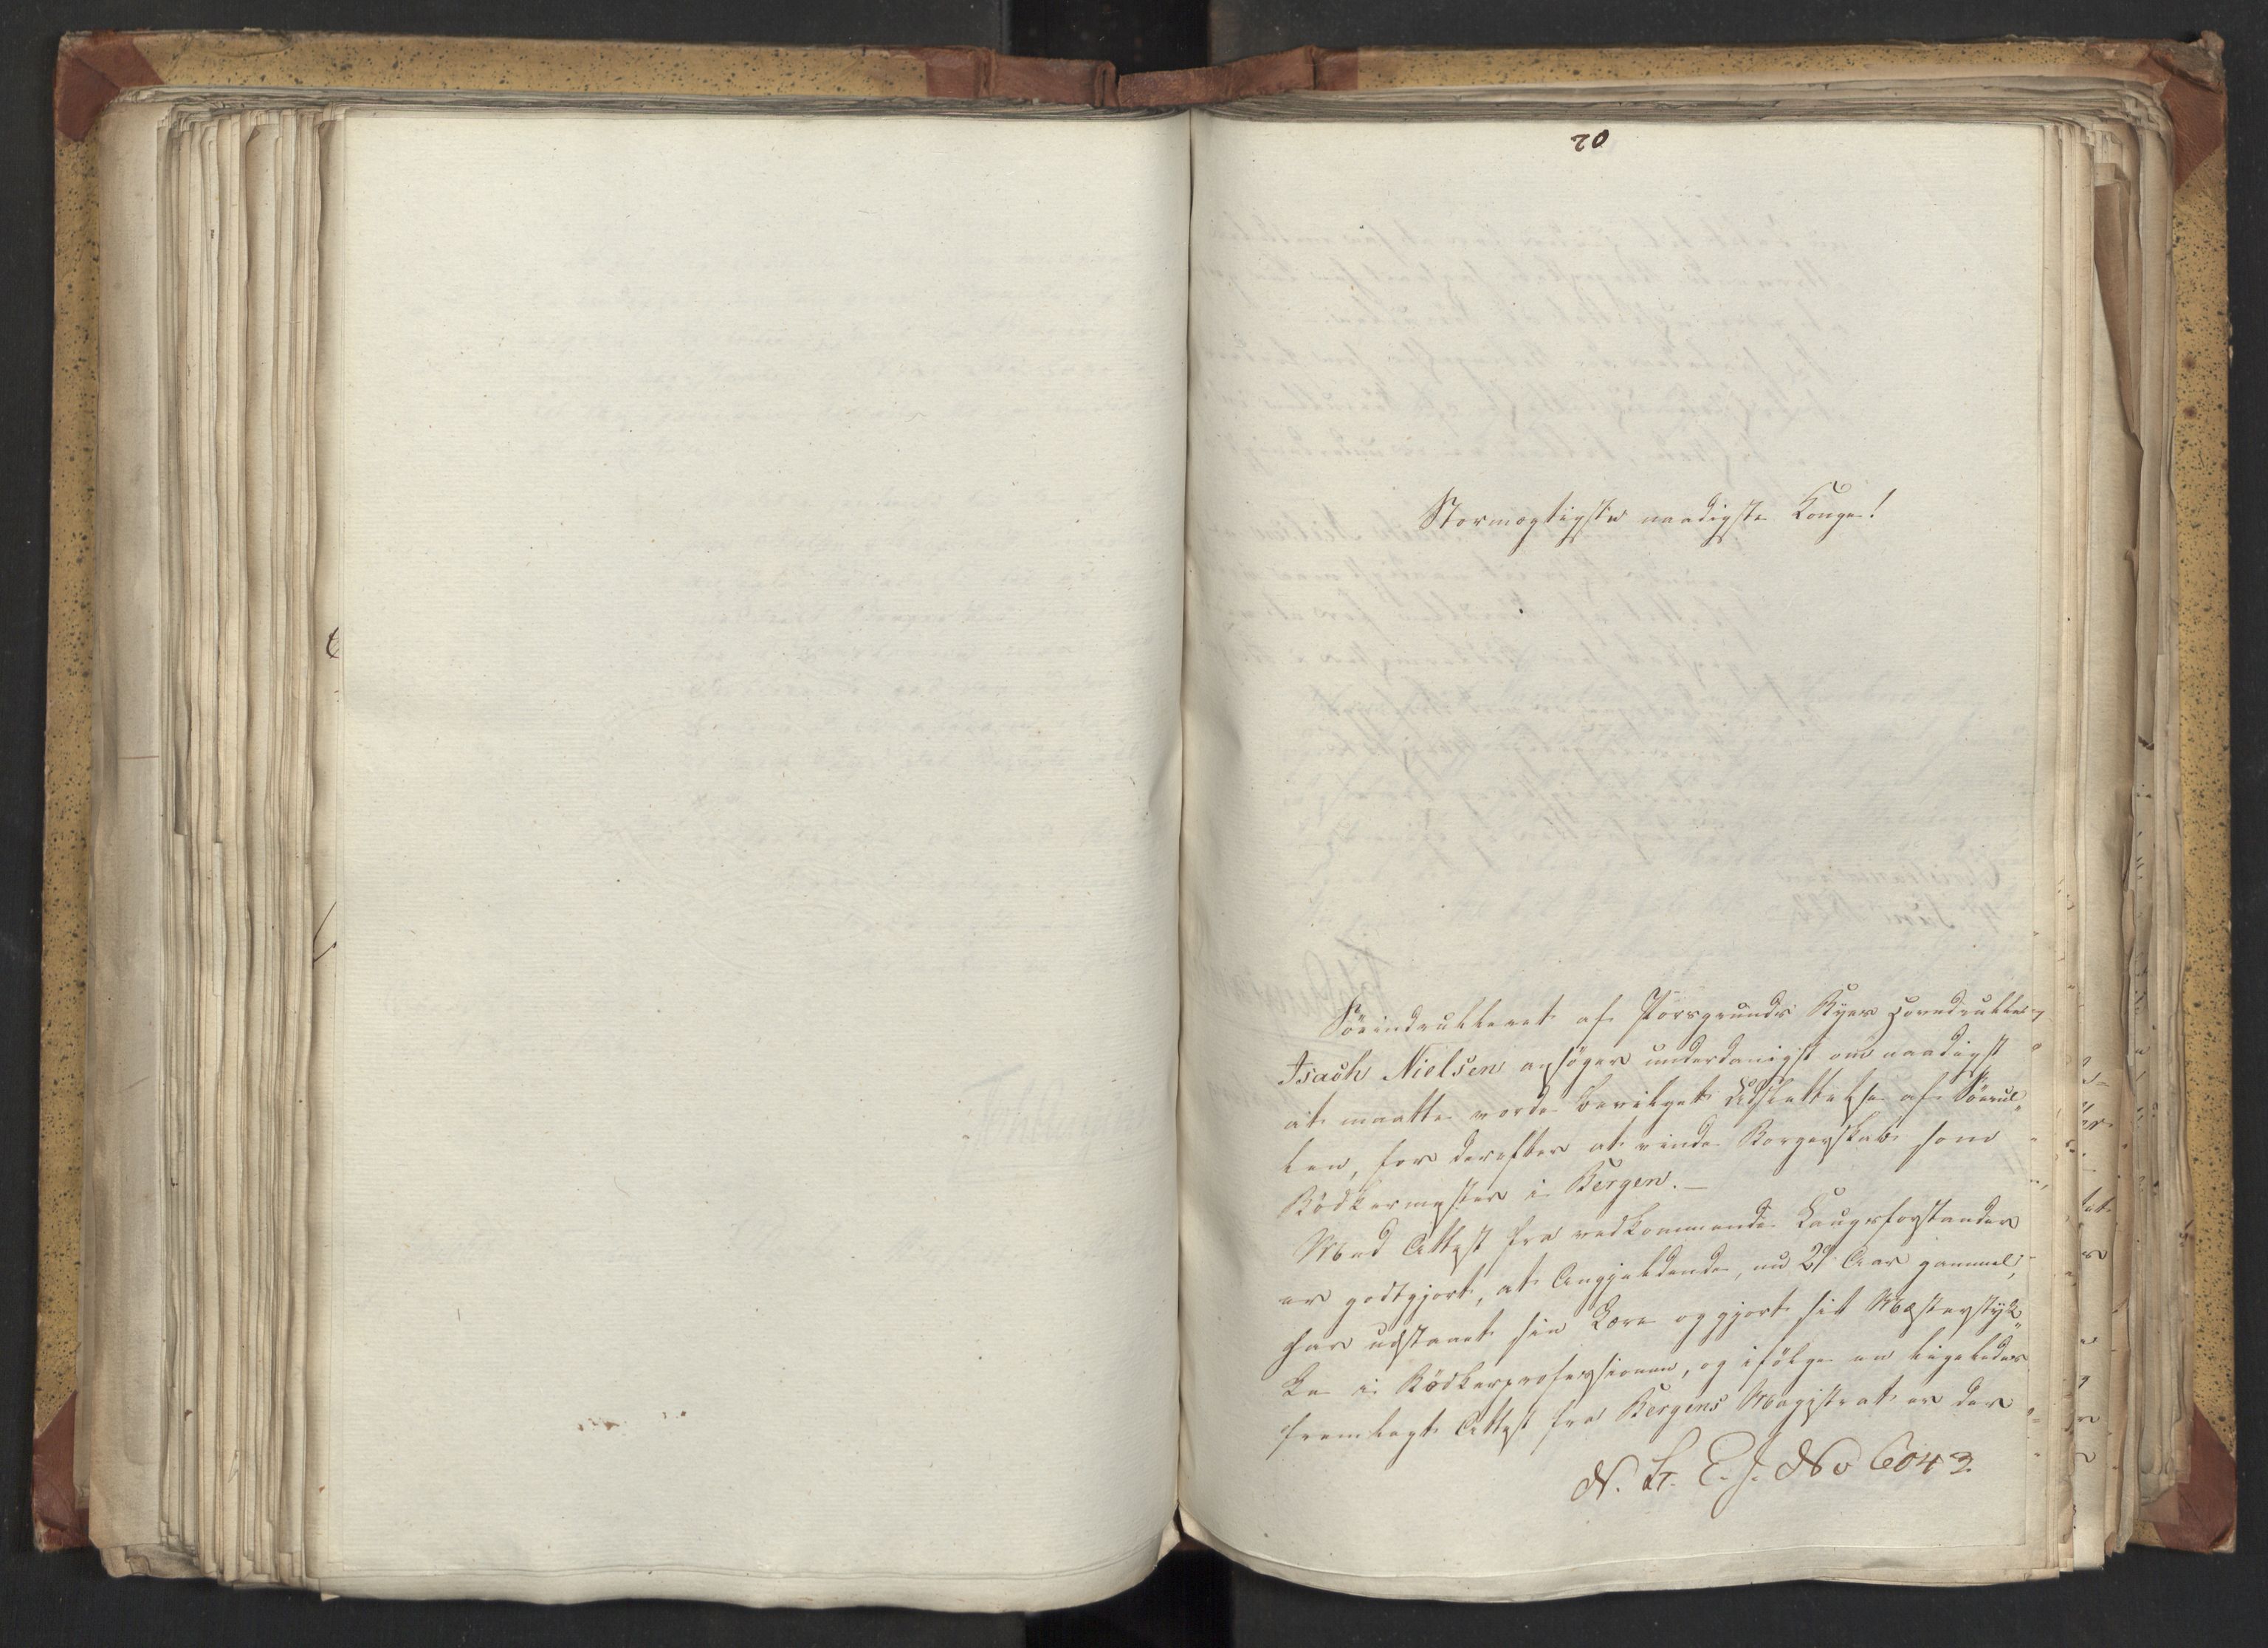 70
Stormægtigste naadigste Konge!
Söeindrulleret af Porsgrunds Byes Hovedrulle
Isach Nielsen ansöger underdanigst om naadigst
at maatte vorde bevilget Udslettelse af Söerul„
len, for derefter at vinde Borgerskab som
Bödkermester i Bergen. —
Med Attest fra vedkommende Laugsforstander
er godtgjort, at Angjeldende, nu 27 Aar gammel,
har udstaaet sin Lære og gjort sit Mesterstyk„
ke i Bödkerprofessionen, og ifölge en ligeledes
fremlagt Attest fra Bergens Magistrat er der
N. 6043